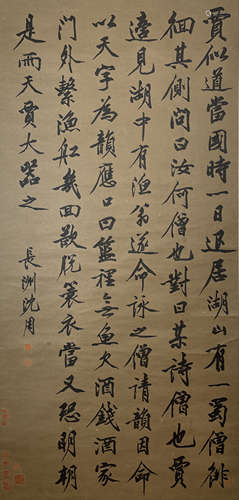 賈似道當國時一日退居湖山有一蜀僧徘
徊其側問曰汝何僧也對曰某詩僧也賈
適見湖中有漁翁遂命詠之僧請韻因命
以天字為韻應口曰籃裡無魚欠酒錢酒家
門外繫漁舡幾回欲脫簑衣當又恐明朝
是雨天賈大器之
長洲沈周